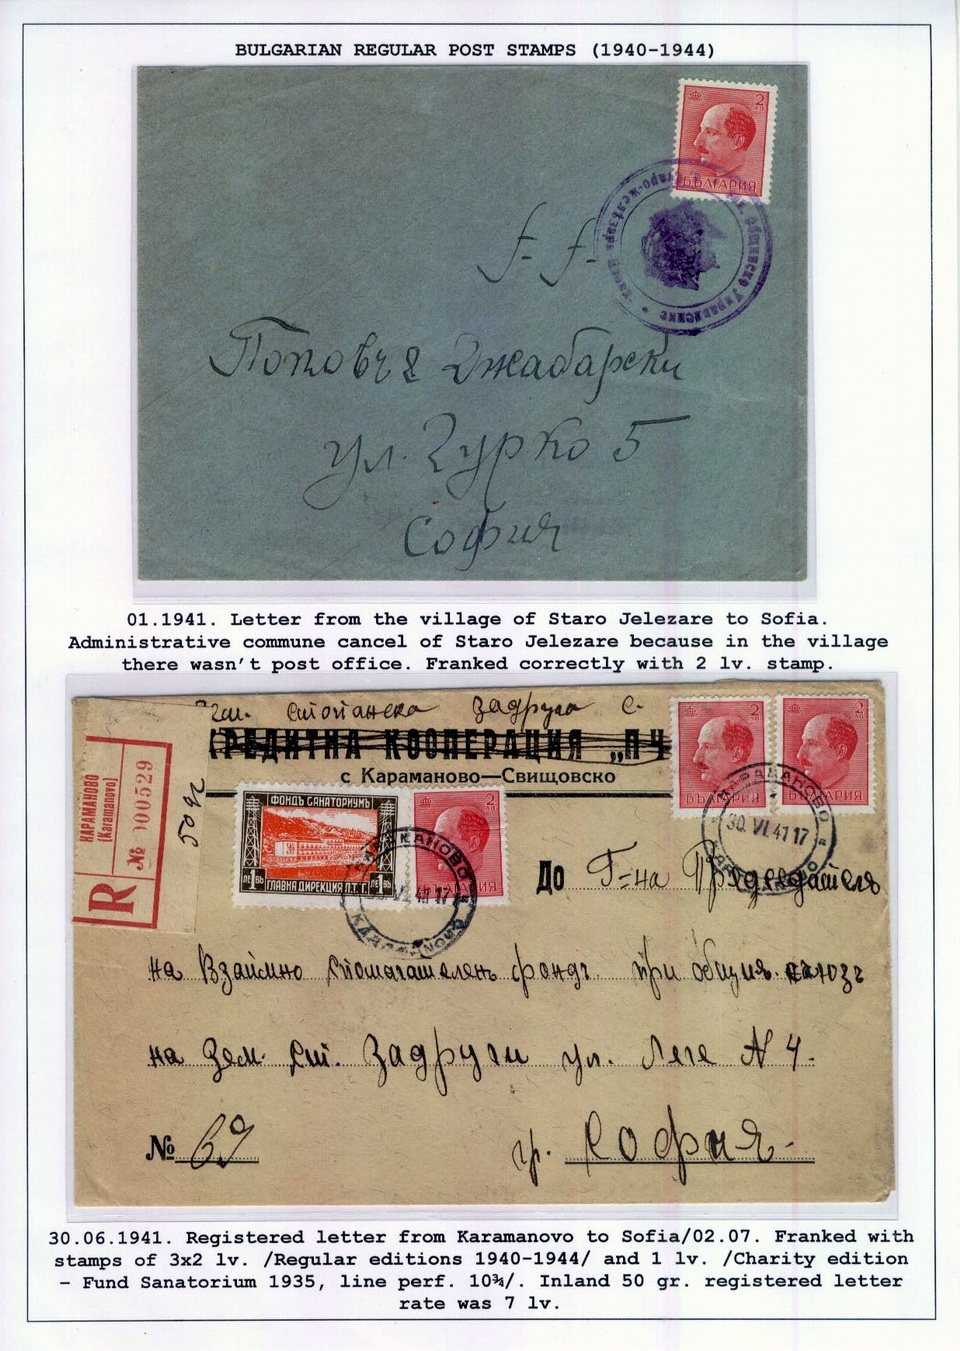 BULGARIAN REGULAR POST STAMPS (1940-1944)
2
ЛВ
БЪЛГАРИЯ
Общинско Управление
Старо-Желѣзаре
Поповъ & Джабарски
ул. Гурко 5
София
01.1941. Letter from the village of Staro Jelezare to Sofia.
Administrative commune cancel of Staro Jelezare because in the village
there wasn't post office. Franked correctly with 2 lv. stamp.
Зем. Стопанска Задруга с.
КРЕДИТНА КООПЕРАЦИЯ „ПЧ
с Караманово—Свищовско
2
ЛВ
БЪЛГАРИЯ
2
ЛВ
БЪЛГАРИЯ
КАРАМАНОВО
30. VI 41 17
КАРАМАНОВО
(Karamanovo)
R
№ 000529
50 gr
ФОНДЪ САНАТОРИУМЪ
ЛЕ 1 ВЪ
ЛЕ 1 ВЪ
ГЛАВНА ДИРЕКЦИЯ П.Т.Т.
2
ЛВ
КАРАМАНОВО
VI 41 17
До Г-на Председателя
на Взаимно спомагателенъ фондъ при общия съюзъ
на Зем. Ст. Задруги ул. Леге № 4.
№ 69
гр. София
30.06.1941. Registered letter from Karamanovo to Sofia/02.07. Franked with
stamps of 3x2 lv. /Regular editions 1940-1944/ and 1 lv. /Charity edition
– Fund Sanatorium 1935, line perf. 10¾/. Inland 50 gr. registered letter
rate was 7 lv.